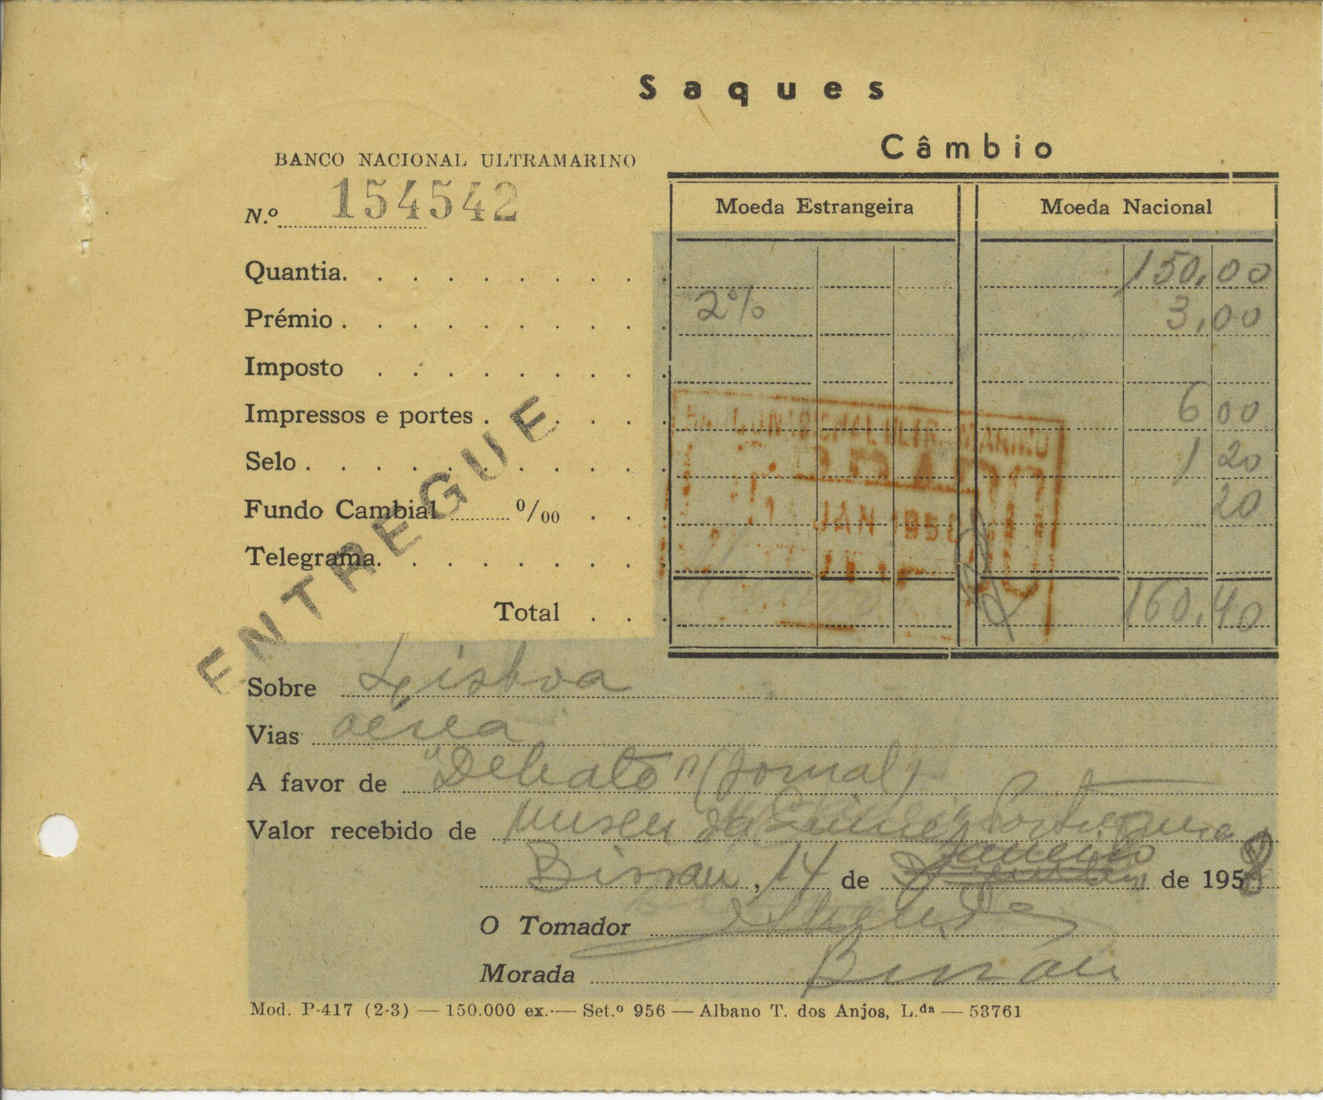 Saques
Câmbio
BANCO NACIONAL ULTRAMARINO
N.º 154542
Moeda Estrangeira Moeda Nacional
Quantia. . . . . . . . 150,00
Prémio . . . . . . . . 2% 3,00
Imposto . . . . . . .
Impressos e portes . . . . 6 00
Selo . . . . . . . . . 1 20
Fundo Cambial ........ º/₀₀ . . 20
Telegrama. . . . . . .
Total . . . 160,40
ENTREGUE
JAN 1958
Sobre Lisboa
Vias aérea
A favor de "Debate" (Jornal)
Valor recebido de Museu da Guiné Portuguesa
Bissau, 14 de Janeiro de 1958
O Tomador
Morada Bissau
Mod. P-417 (2-3) — 150.000 ex. — Set.º 956 — Albano T. dos Anjos, L.ᵈᵃ — 53761